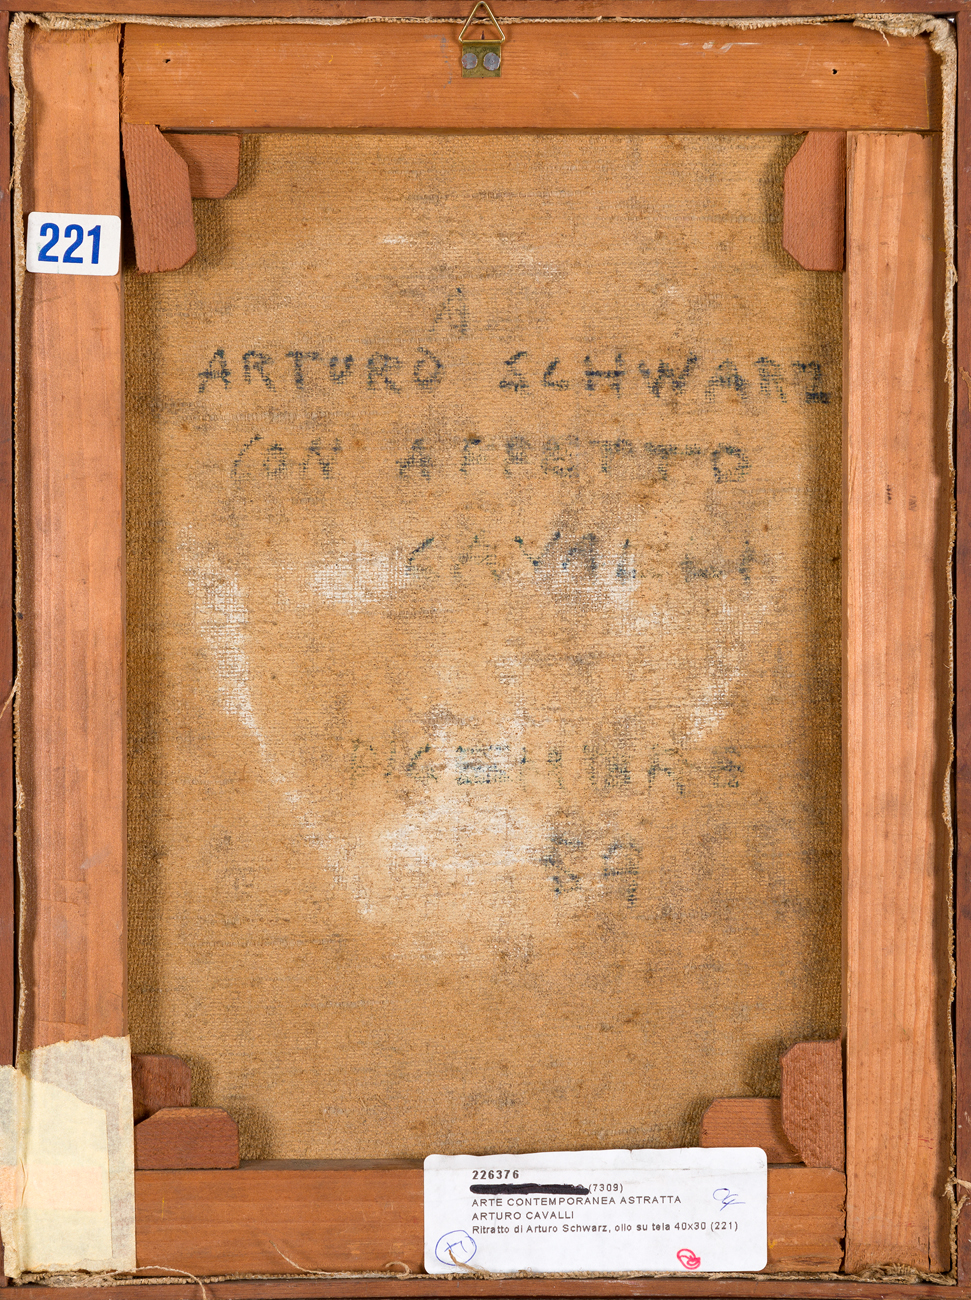 221
A
ARTURO SCHWARZ
CON AFFETTO
226376
(7309)
ARTE CONTEMPORANEA ASTRATTA
ARTURO CAVALLI
Ritratto di Arturo Schwarz, olio su tela 40x30 (221)